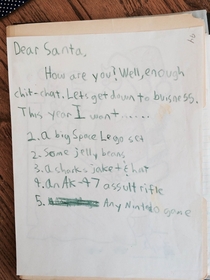 Dear Santa,
How are you? Well, enough
chit-chat. Lets get down to buisness.
This year I want.....
1. a big Space Lego set
2. Some jelly beans
3. a sharks jacket & hat
4. an AK-47 assult rifle
5. Any Nintendo game